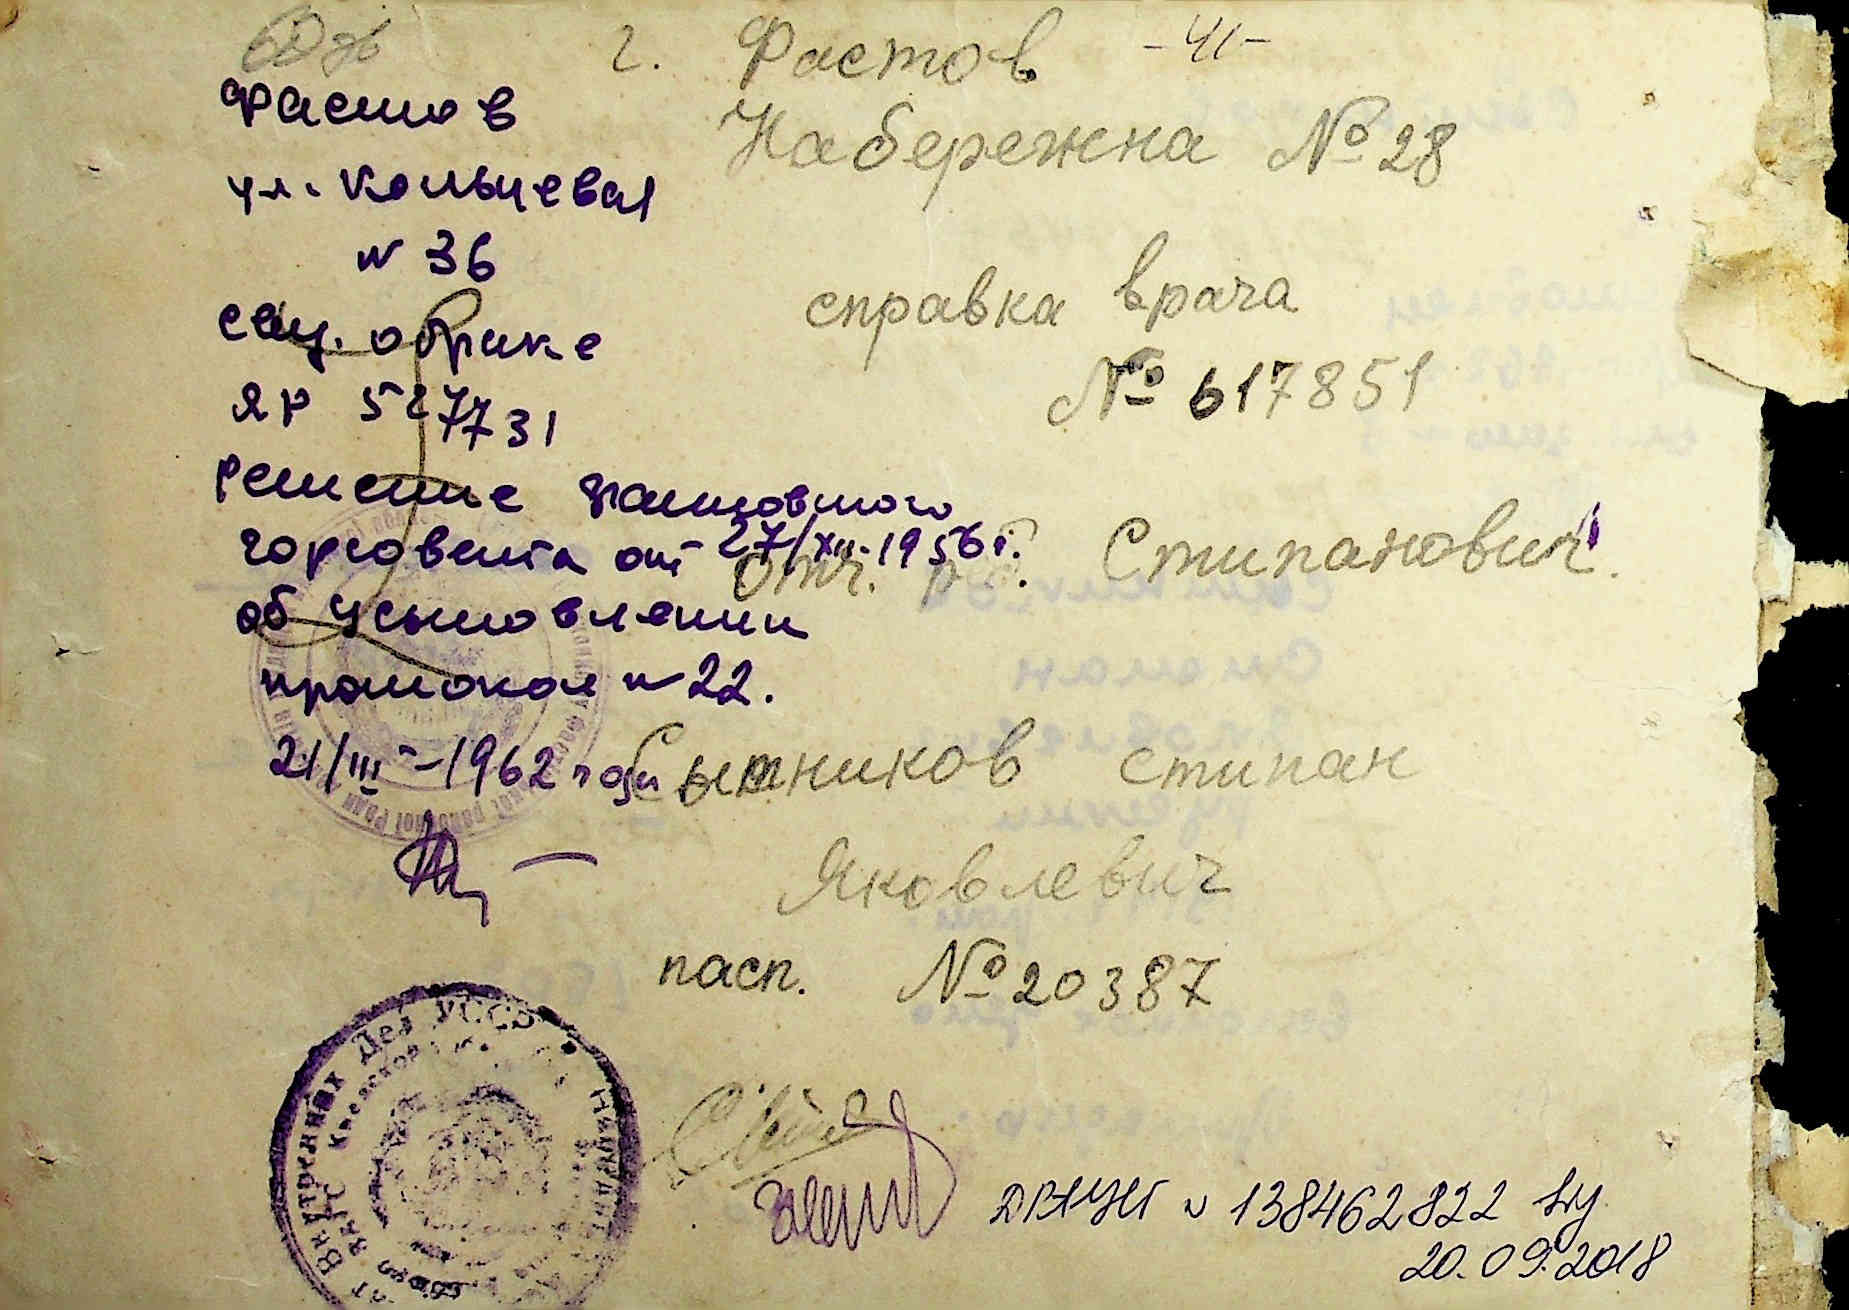 г. Фастов -41-
Набережна № 28
справка врача
№ 617851
отч. Стипанович.
Сытников стипан
Яковлевич
пасп. № 20387
Фастов
ул. Кольцевая
N 36
свид. о браке
ЯР 527731
решение Фастовского
горсовета от 27/XII-1956 г.
об усыновлении
протокол N 22.
21/III-1962 года
Внутренних Дел УССР
ЗАГС Киевской
ДРАЦСГ N 138462822
20.09.2018